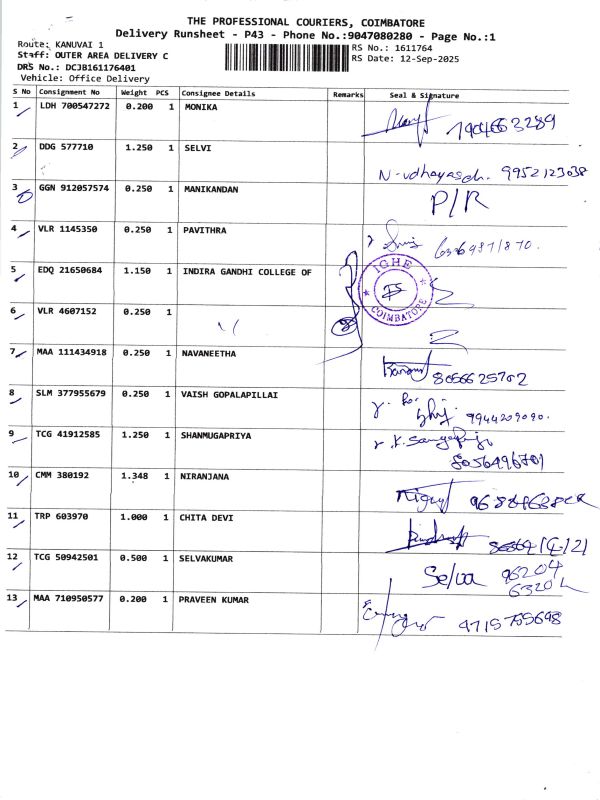 THE PROFESSIONAL COURIERS, COIMBATORE
Delivery Runsheet - P43 - Phone No.:9047080280 - Page No.:1
Route: KANUVAI 1
RS No.: 1611764
Staff: OUTER AREA DELIVERY C
RS Date: 12-Sep-2025
DRS No.: DCJB161176401
Vehicle: Office Delivery
S No Consignment No Weight PCS Consignee Details Remarks Seal & Signature
1 LDH 700547272 0.200 1 MONIKA
2 DDG 577710 1.250 1 SELVI
N-udhayasch. 9952123038
3 GGN 912057574 0.250 1 MANIKANDAN P/R
4 VLR 1145350 0.250 1 PAVITHRA
5 EDQ 21650684 1.150 1 INDIRA GANDHI COLLEGE OF
IGHE
COIMBATORE
6 VLR 4607152 0.250 1
7 MAA 111434918 0.250 1 NAVANEETHA
8056625702
8 SLM 377955679 0.250 1 VAISH GOPALAPILLAI
9944209090.
9 TCG 41912585 1.250 1 SHANMUGAPRIYA
8056496701
10 CMM 380192 1.348 1 NIRANJANA
11 TRP 603970 1.000 1 CHITA DEVI
12 TCG 50942501 0.500 1 SELVAKUMAR
Selva 96204
13 MAA 710950577 0.200 1 PRAVEEN KUMAR